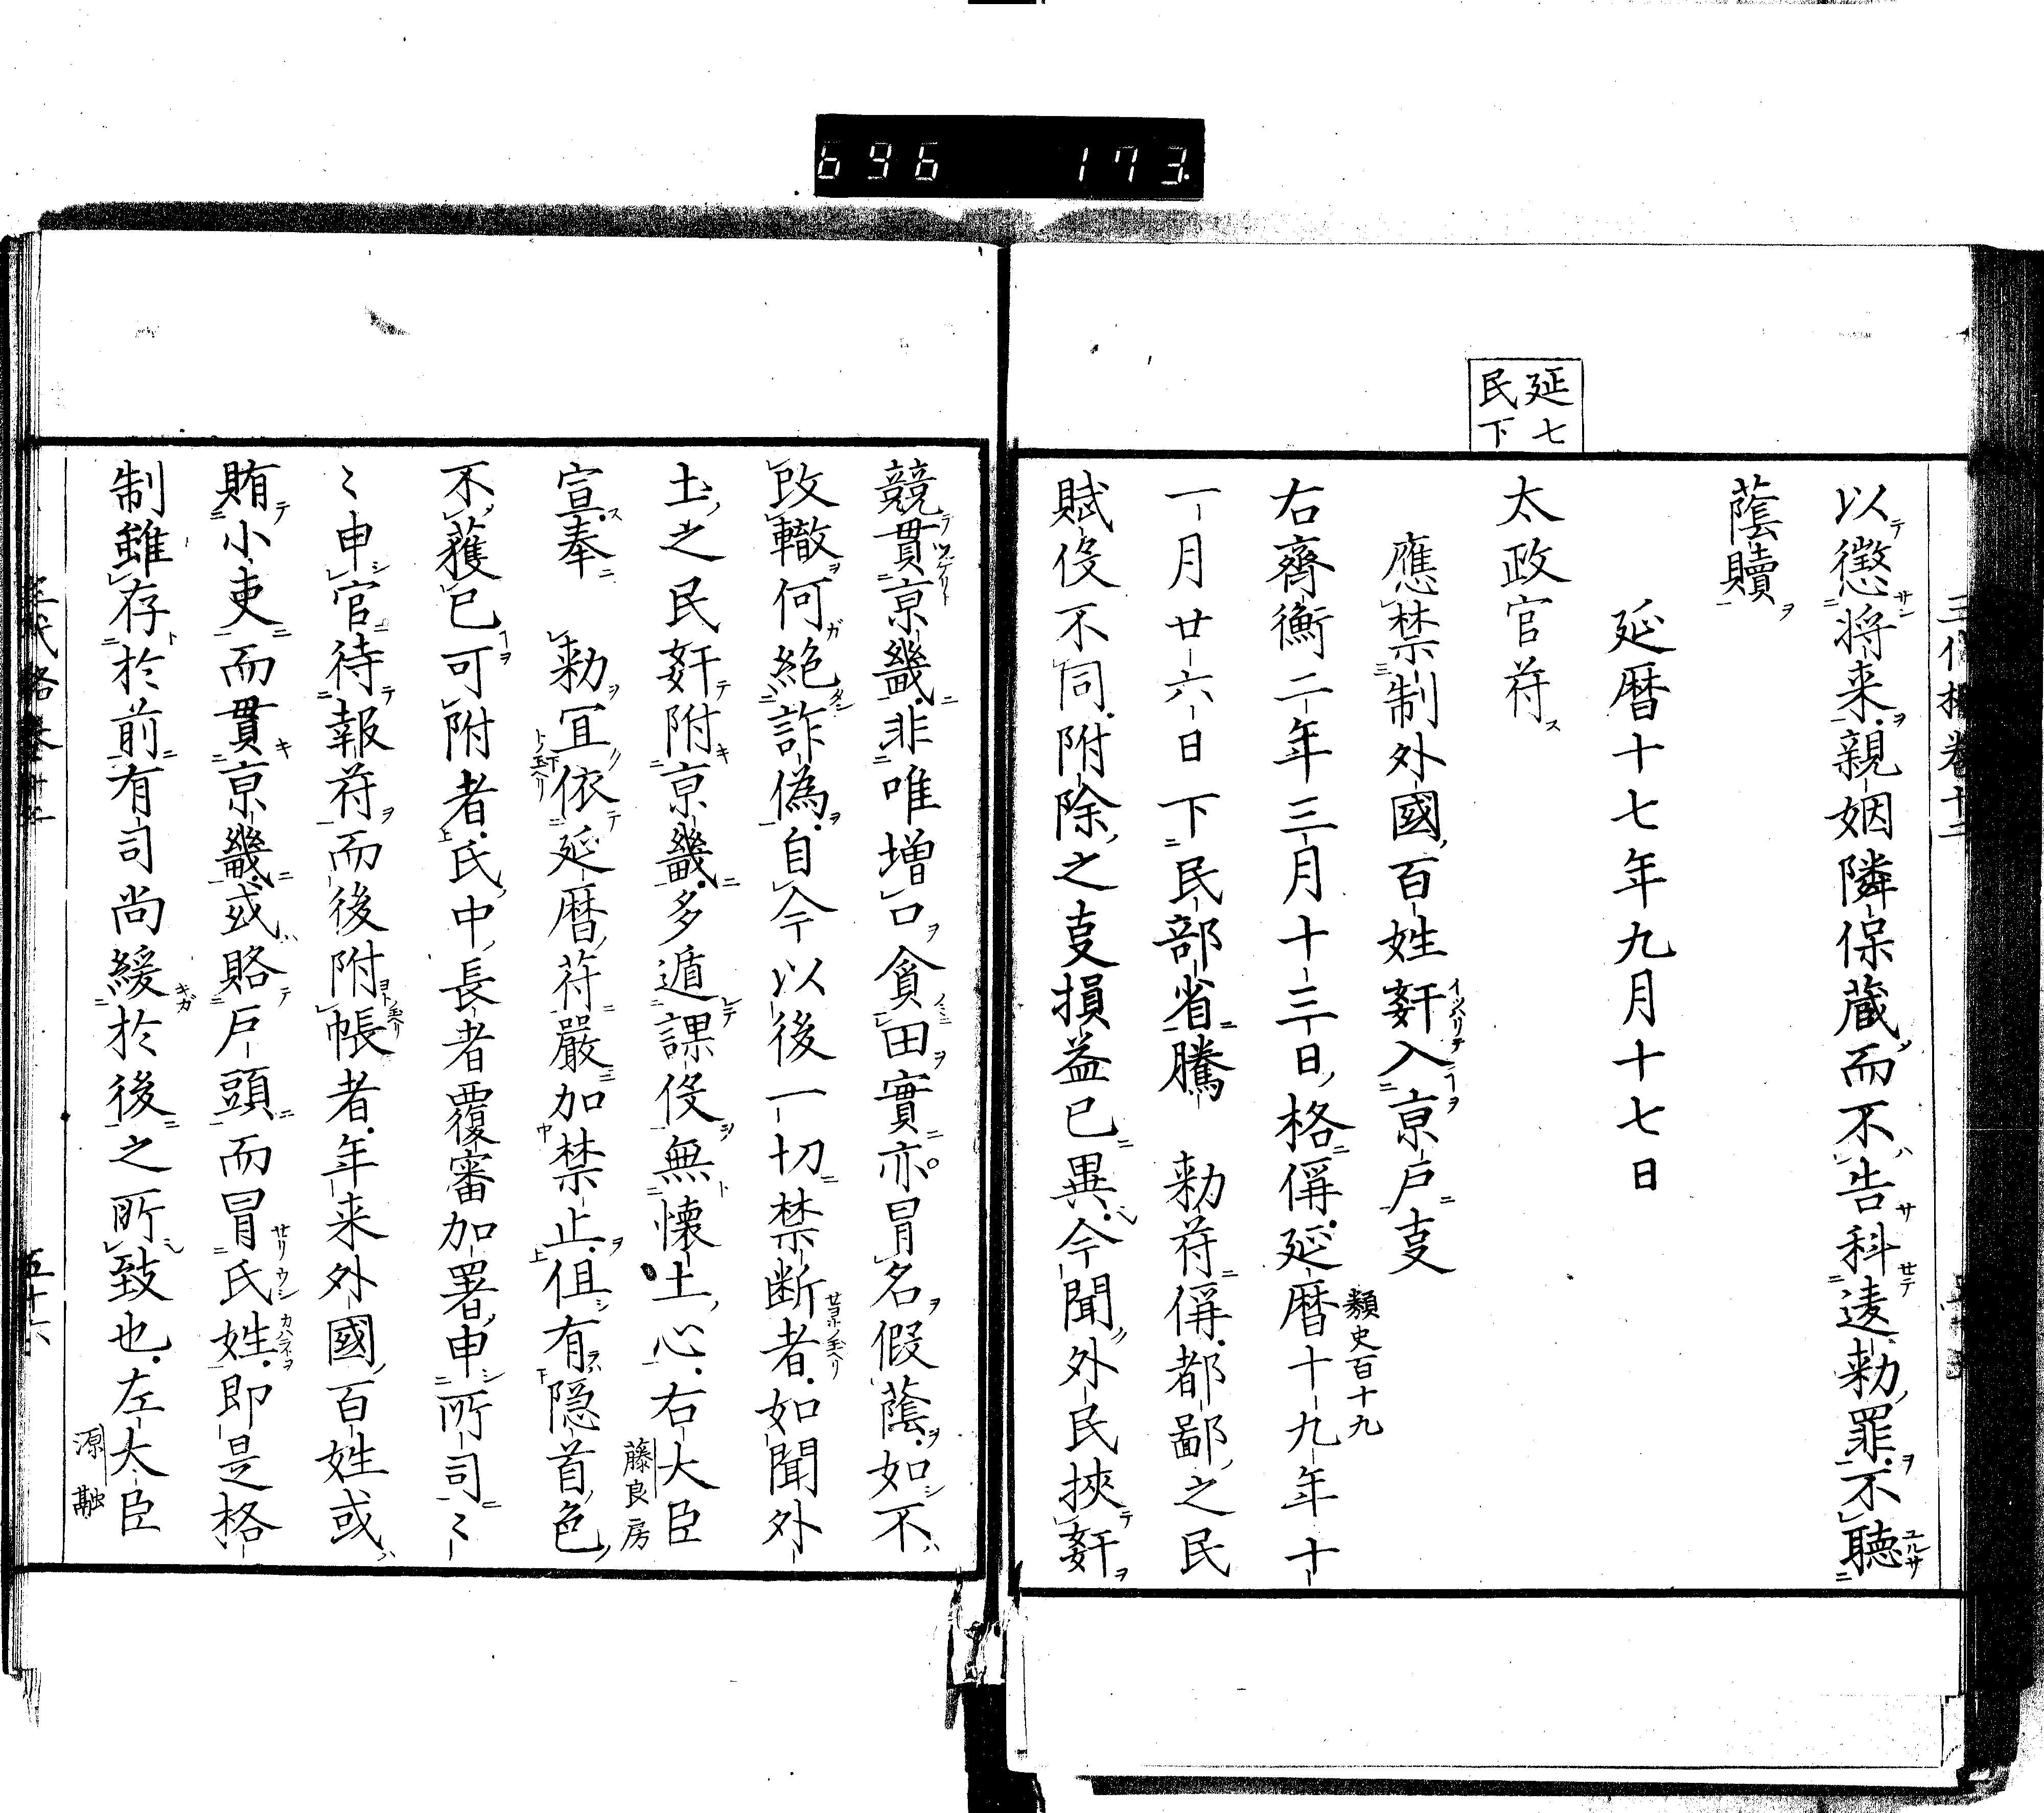 696 173
以懲將来親姻隣保蔵而不告科違勅罪不聴
蔭贖
延暦十七年九月十七日
延七
民下
太政官符
應禁制外國百姓奸入京戸事
右齊衡二年三月十三日格偁延暦十九年十
類史百十九
一月廿六日下民部省騰 勅符偁都鄙之民
賦役不同附除之事損益已異今聞外民挾奸
競貫京畿非唯増口貪田實亦冒名假蔭如不
改轍何絶詐偽自今以後一切禁断者如聞外
土之民奸附京畿多遁課役無懐土心右大臣
藤良房
宣奉 勅宜依延暦符嚴加禁止但有隠首色
不獲已可附者氏中長者覆審加署申所司〻
〻申官待報符而後附帳者年来外國百姓或
賄小吏而貫京畿或賂戸頭而冒氏姓即是格
制雖存於前有司尚緩於後之所致也左大臣
源融